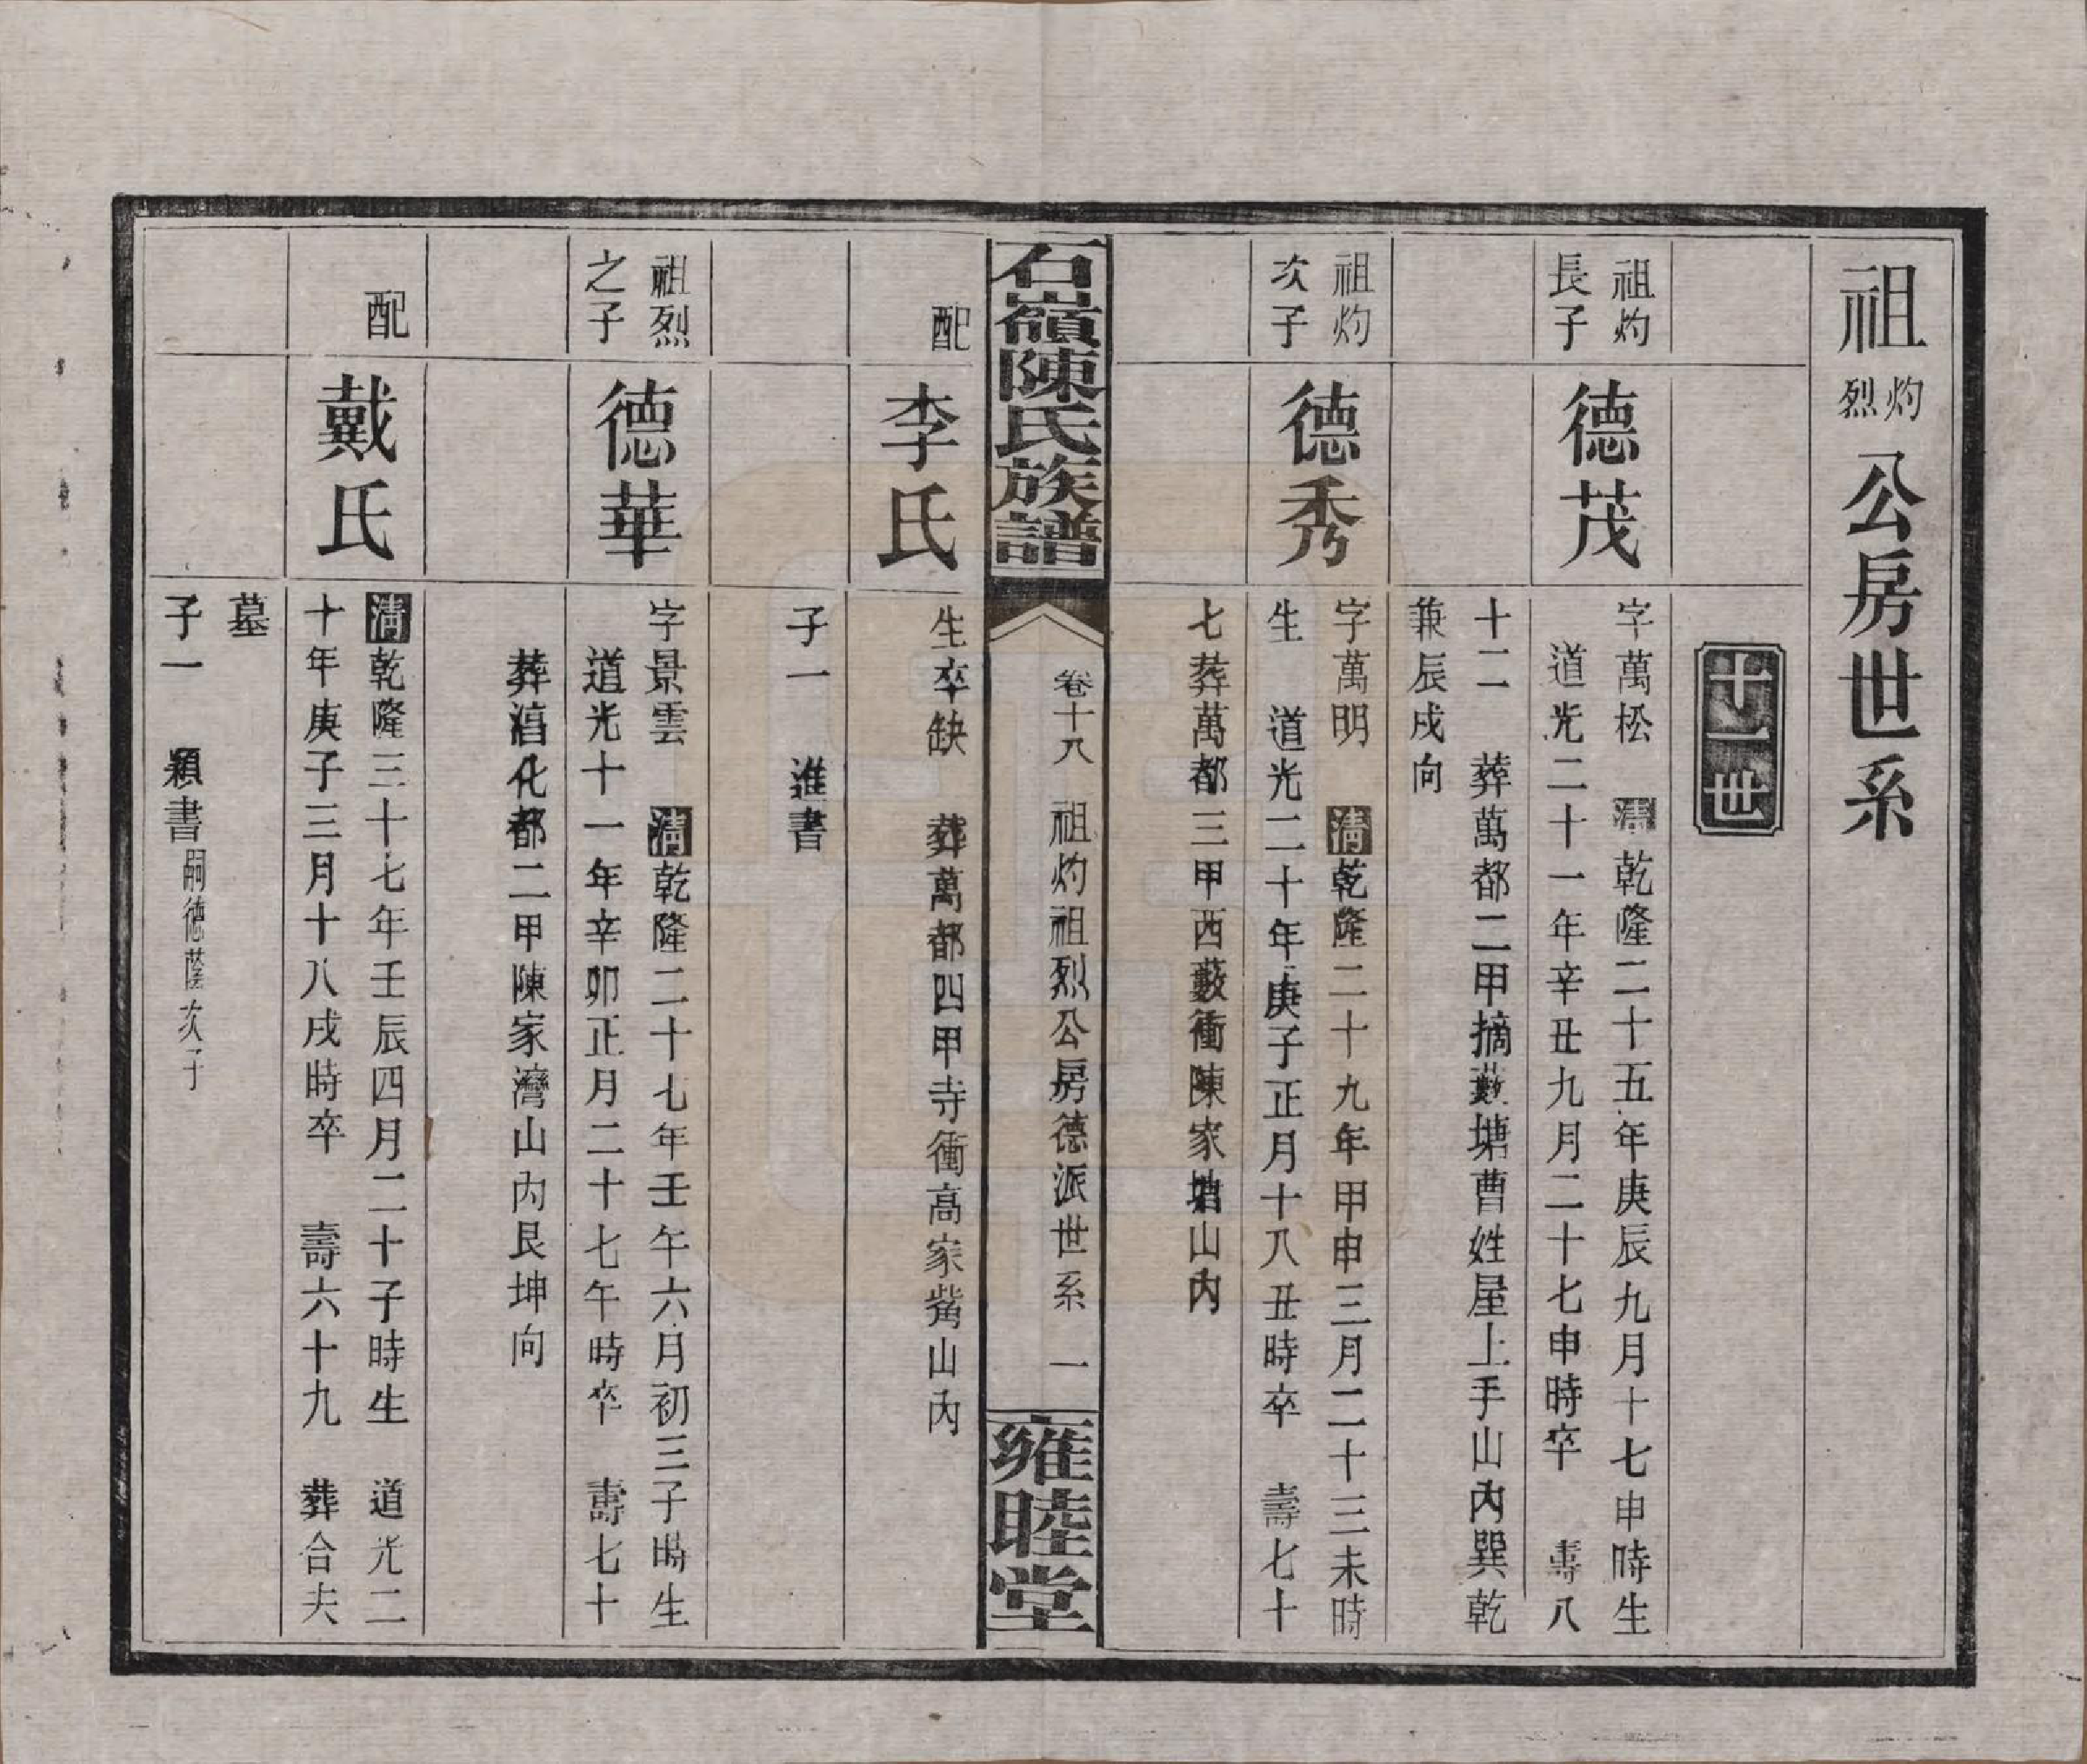 祖灼烈公房世系
十一世
祖灼
長子
德茂
字萬松 清乾隆二十五年庚辰九月十七申時生
道光二十一年辛丑九月二十七申時卒 壽八
十二 葬萬都二甲摘藪塘曹姓屋上手山內巽乾
兼辰戌向
祖灼
次子
德秀
字萬明 清乾隆二十九年甲申三月二十三未時
生 道光二十年庚子正月十八丑時卒 壽七十
七葬萬都三甲西藪衝陳家塘山內
石嶺陳氏族譜
卷十八 祖灼祖烈公房德派世系 一
雍睦堂
配
李氏
生卒缺 葬萬都四甲寺衝高家嘴山內
子一 進書
祖烈
之子
德華
字景雲 清乾隆二十七年壬午六月初三子時生
道光十一年辛卯正月二十七午時卒 壽七十
葬淯化都二甲陳家灣山內艮坤向
配
戴氏
清乾隆三十七年壬辰四月二十子時生 道光二
十年庚子三月十八戌時卒 壽六十九 葬合夫
墓
子一 顯書嗣德蔭次子